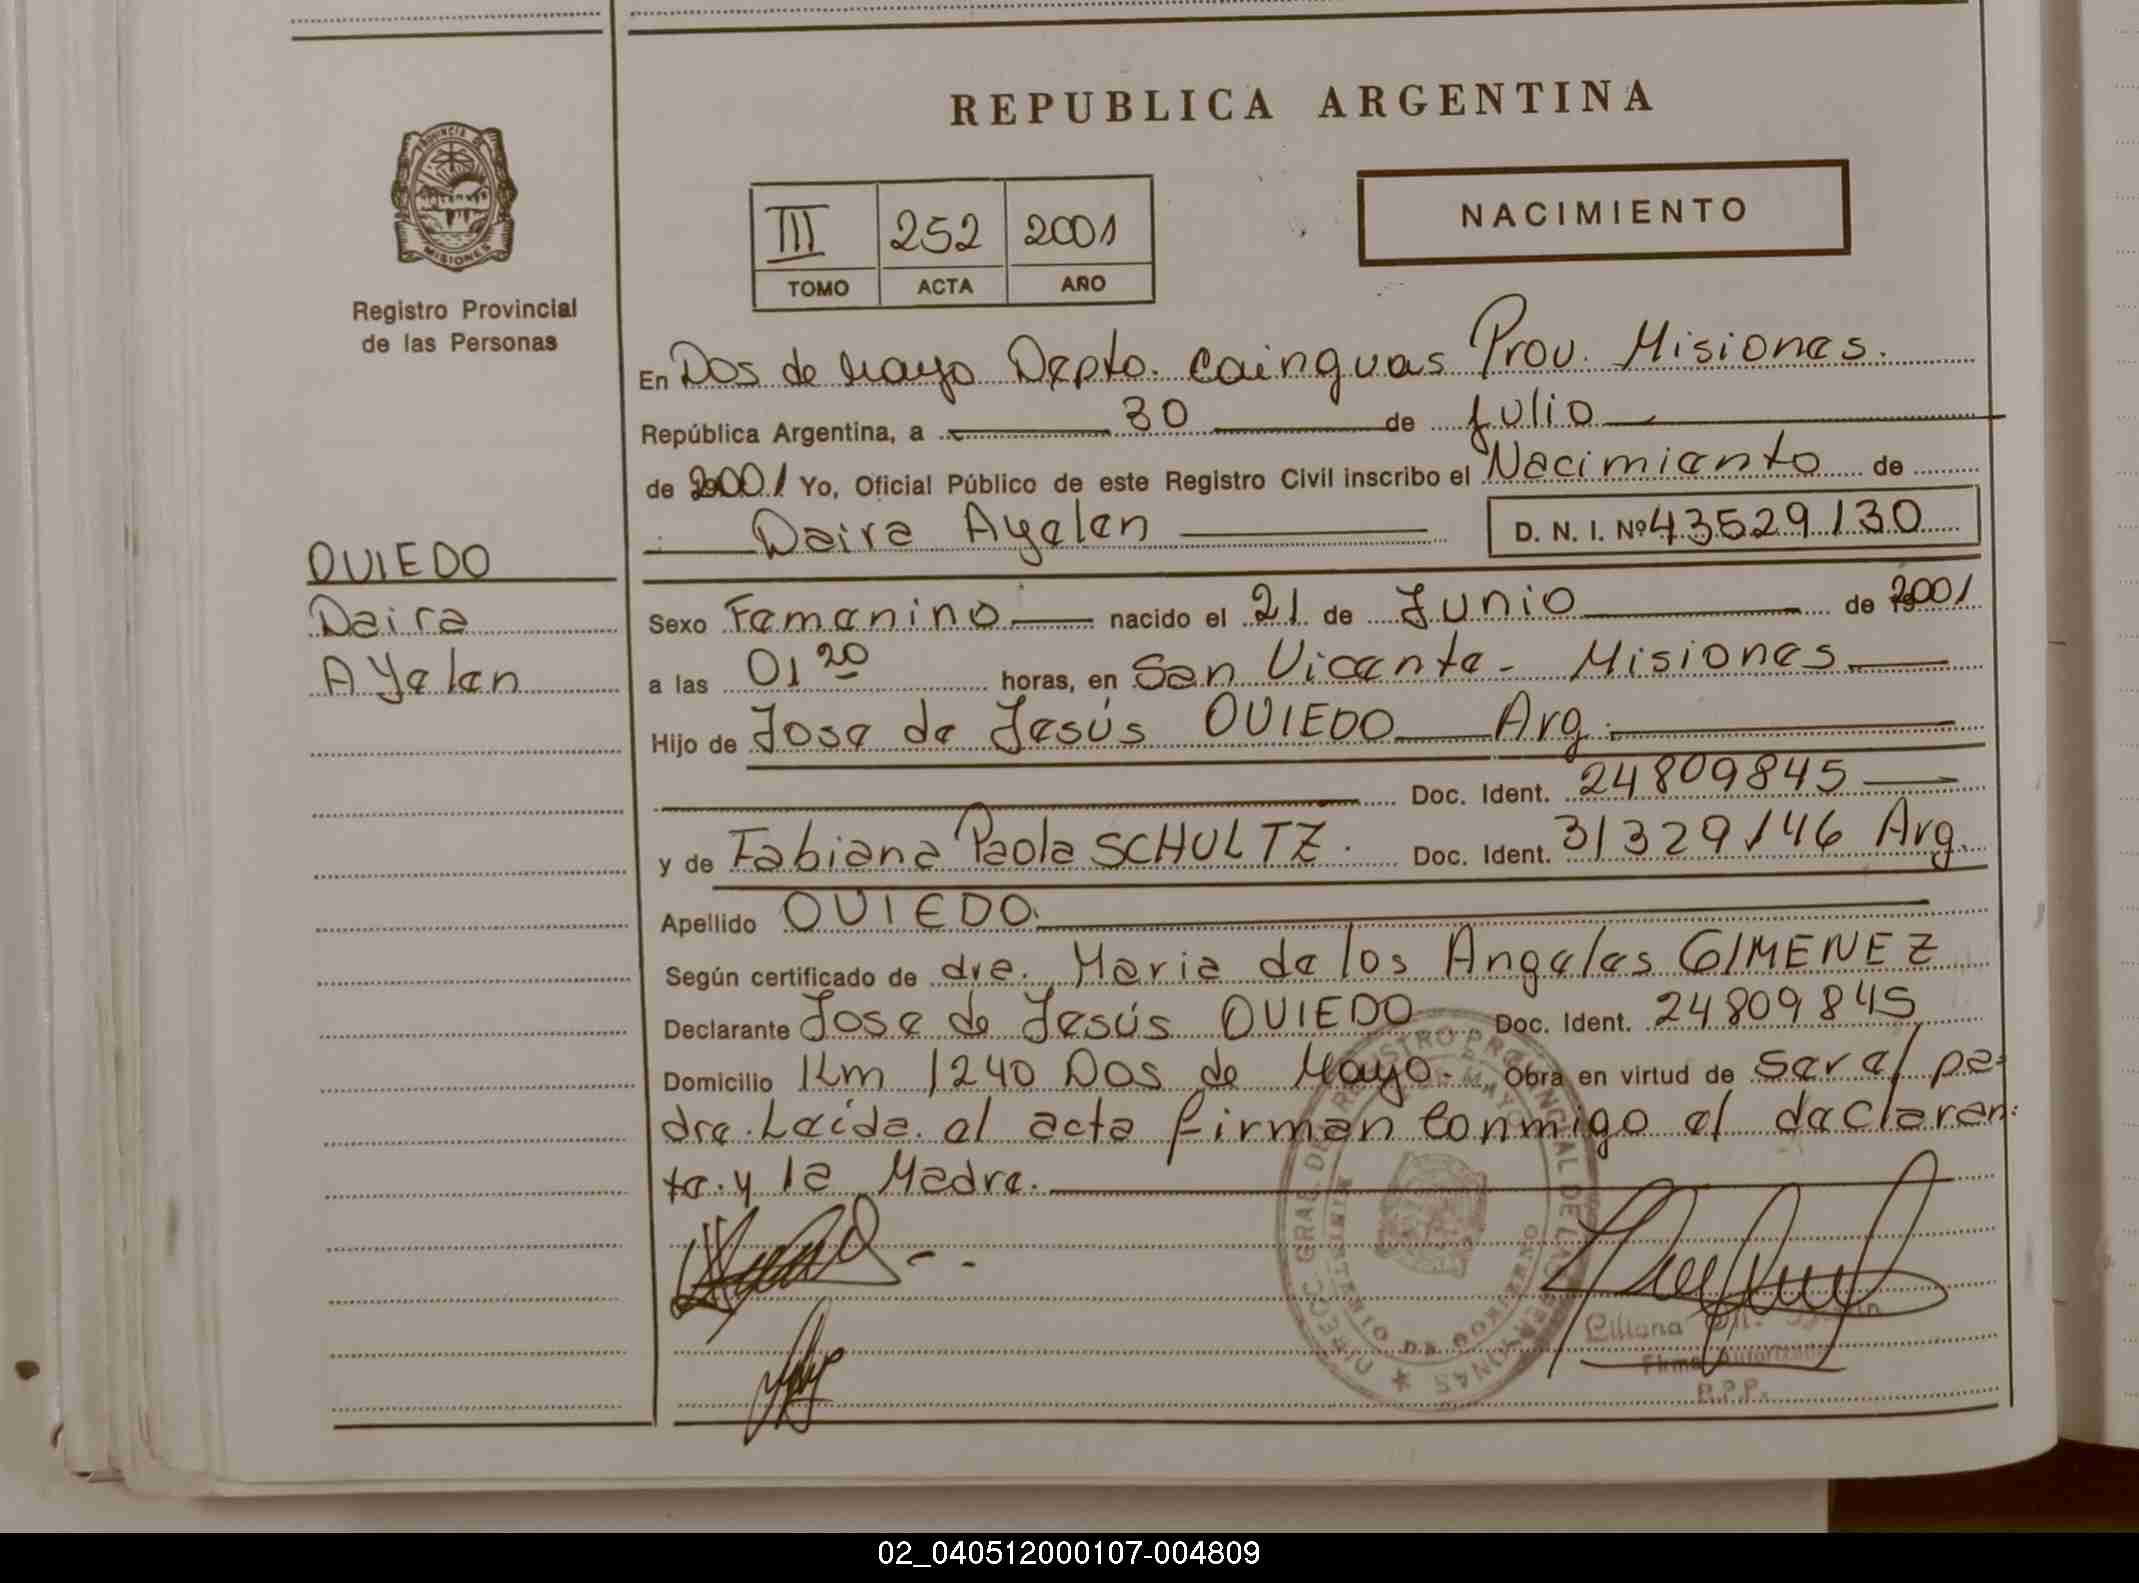 REPUBLICA ARGENTINA
PROVINCIA DE
MISIONES
Registro Provincial
de las Personas
III 252 2001
TOMO ACTA AÑO
NACIMIENTO
En Dos de Mayo Depto. Cainguas Prov. Misiones.
República Argentina, a 30 de Julio
de 2001 Yo, Oficial Público de este Registro Civil inscribo el Nacimiento de
Daira Ayelen D. N. I. Nº 43529130
OVIEDO
Daira
AYelen
Sexo Femenino nacido el 21 de Junio de 2001
a las 01 20 horas, en San Vicente - Misiones
Hijo de Jose de Jesús OVIEDO Arg.
Doc. Ident. 24809845
y de Fabiana Paola SCHULTZ. Doc. Ident. 31329146 Arg.
Apellido OVIEDO.
Según certificado de dra. Maria de los Angeles GIMENEZ
Declarante Jose de Jesús OVIEDO Doc. Ident. 24809845
Domicilio Km 1240 Dos de Mayo - Obra en virtud de Ser el pa-
dre. Leida el acta firman conmigo el declaran-
te y la Madre.
DIRECC. GRAL. DEL REGISTRO PROVINCIAL DE LAS PERSONAS
MINISTERIO DE GOBIERNO
DOS DE MAYO
Liliana
Firma Autorizada
R.P.P.
02_040512000107-004809